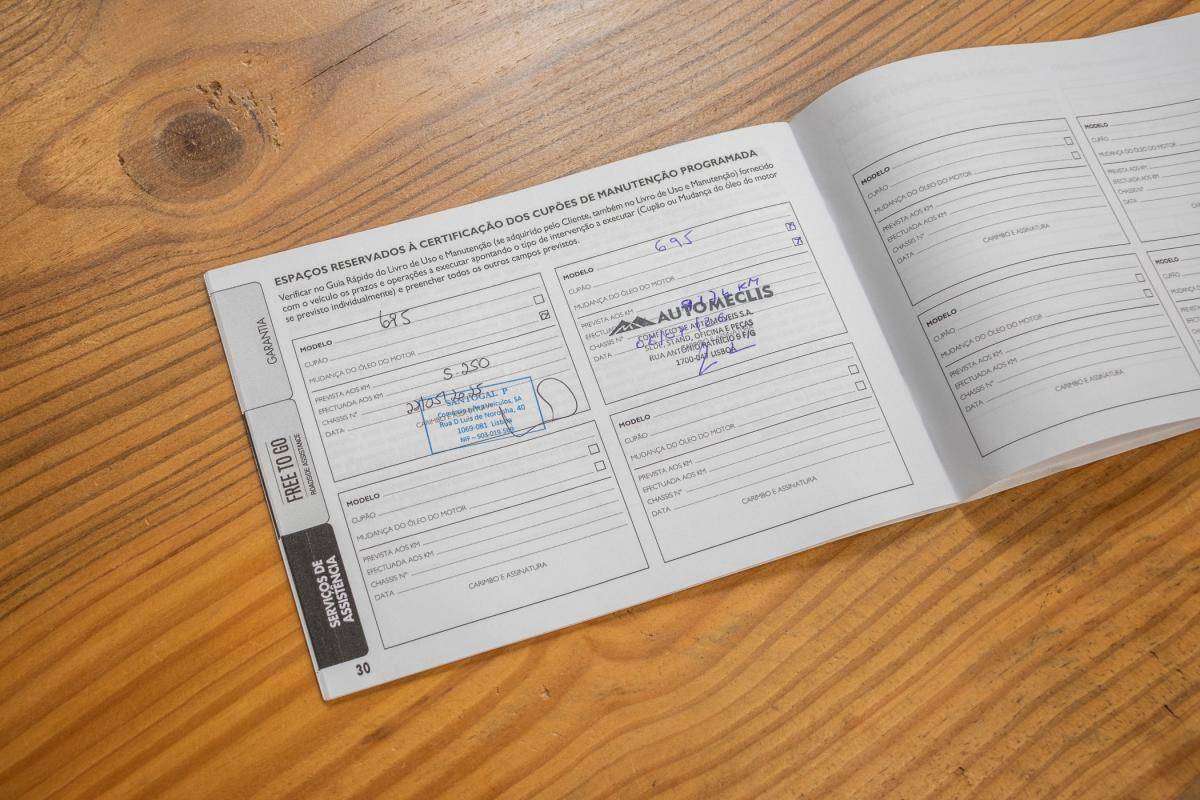 ESPAÇOS RESERVADOS À CERTIFICAÇÃO DOS CUPÕES DE MANUTENÇÃO PROGRAMADA
Verificar no Guia Rápido do Livro de Uso e Manutenção (se adquirido pelo Cliente, também no Livro de Uso e Manutenção) fornecido
com o veículo os prazos e operações a executar apontando o tipo de intervenção a executar (Cupão ou Mudança do óleo do motor
se previsto individualmente) e preencher todos os outros campos previstos.
GARANTIA
FREE TO GO
ROADSIDE ASSISTANCE
SERVIÇOS DE
ASSISTÊNCIA
MODELO 695
CUPÃO
MUDANÇA DO ÓLEO DO MOTOR
PREVISTA AOS KM
EFECTUADA AOS KM 5.250
CHASSIS Nº
DATA 22/05/2025
CARIMBO E ASSINATURA
SANTOGAL P
Comércio Rep. Veículos, SA
Rua D Luis de Noronha, 40
1069-081 Lisboa
MODELO 695
CUPÃO
MUDANÇA DO ÓLEO DO MOTOR
PREVISTA AOS KM
KM
DATA
AUTOMECLIS
COMÉRCIO DE AUTOMÓVEIS S.A.
SEDE, STAND, OFICINA E PEÇAS
RUA ANTÓNIO PATRÍCIO 9 F/G
1700-047 LISBOA
MODELO
CUPÃO
MUDANÇA DO ÓLEO DO MOTOR
PREVISTA AOS KM
EFECTUADA AOS KM
CHASSIS Nº
DATA
CARIMBO E ASSINATURA
MODELO
CUPÃO
MUDANÇA DO ÓLEO DO MOTOR
PREVISTA AOS KM
EFECTUADA AOS KM
CHASSIS Nº
DATA
CARIMBO E ASSINATURA
30
MODELO
CUPÃO
MUDANÇA DO ÓLEO DO MOTOR
PREVISTA AOS KM
EFECTUADA AOS KM
CHASSIS Nº
DATA
CARIMBO E ASSINATURA
MODELO
CUPÃO
MUDANÇA DO ÓLEO DO MOTOR
PREVISTA AOS KM
EFECTUADA AOS KM
CHASSIS Nº
DATA
MODELO
CUPÃO
MUDANÇA DO ÓLEO DO MOTOR
PREVISTA AOS KM
EFECTUADA AOS KM
CHASSIS Nº
DATA
CARIMBO E ASSINATURA
MODELO
CUPÃO
MUDANÇA DO ÓLEO DO
PREVISTA AOS KM
EFECTUADA AOS KM
CHASSIS Nº
DATA